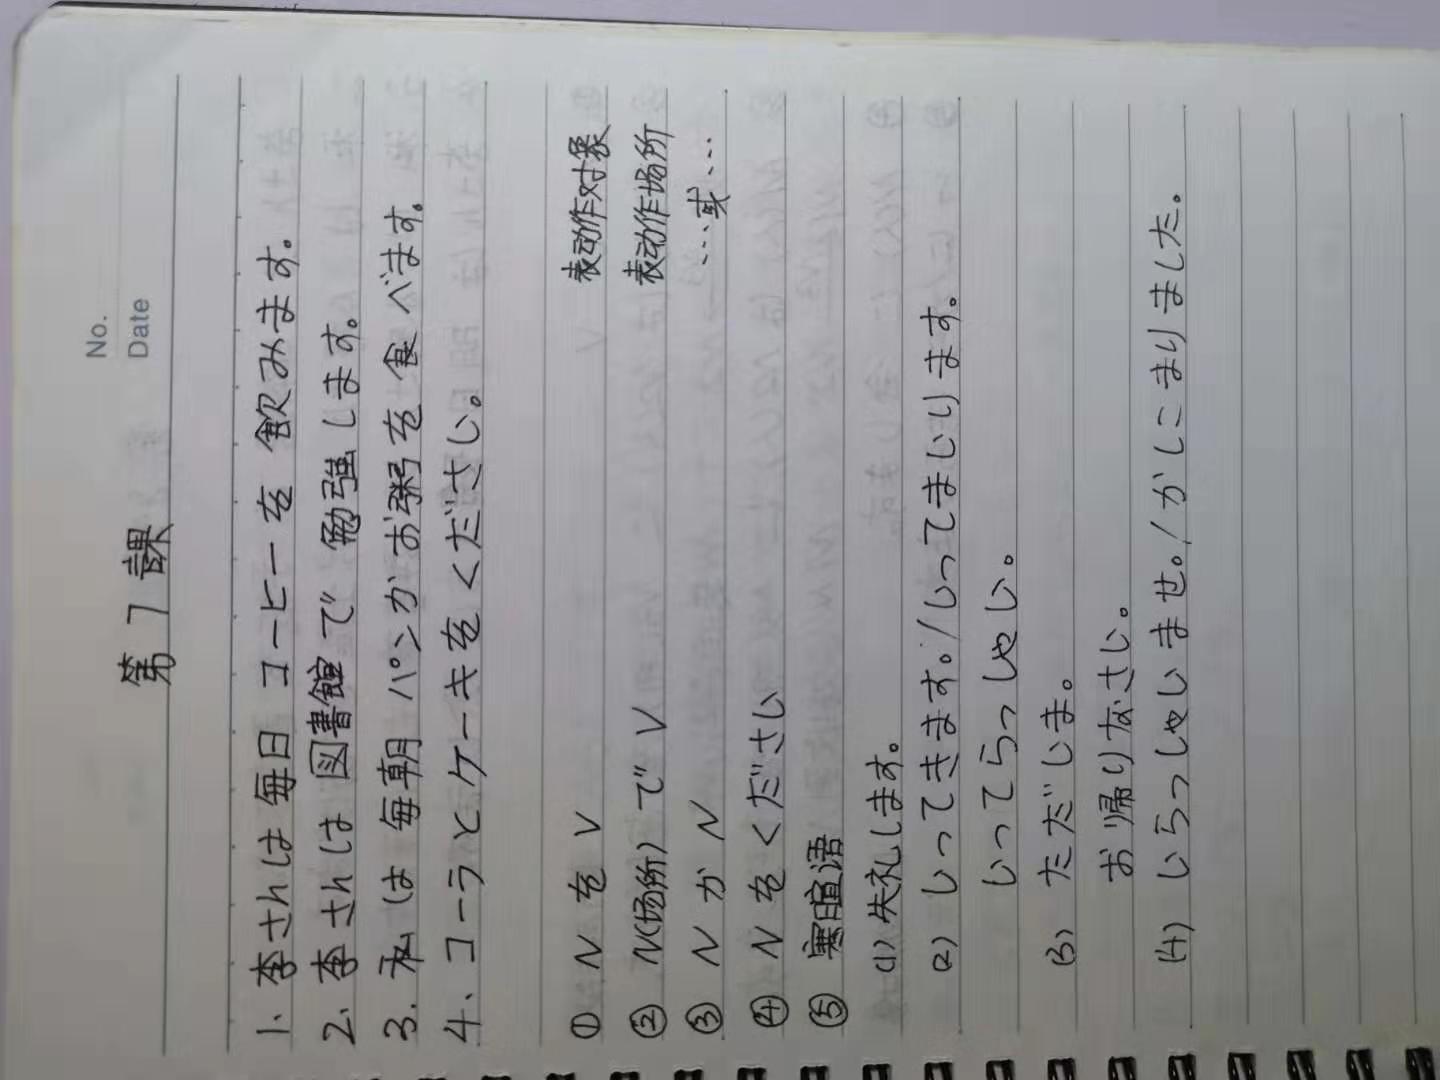 No.
Date
第7課
1. 李さんは毎日コーヒーを飲みます。
2. 李さんは図書館で勉強します。
3. 私は毎朝パンかお粥を食べます。
4. コーラとケーキをください。
① NをV 表动作对象
② N(场所)でV 表动作场所
③ NかN …或…
④ Nをください
⑤ 寒暄语
(1) 失礼します。
(2) いってきます。/いってまいります。
いってらっしゃい。
(3) ただいま。
お帰りなさい。
(4) いらっしゃいませ。/かしこまりました。